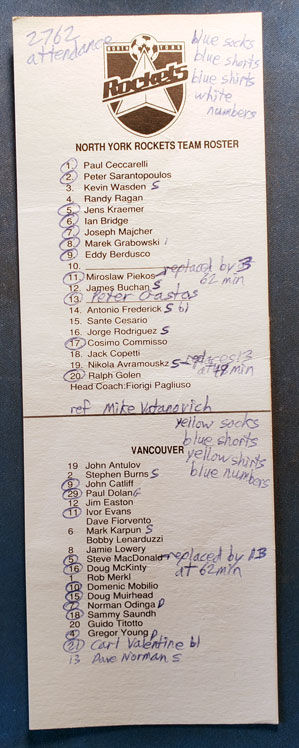 2762
attendance
NORTH YORK
Rockets
blue socks
blue shorts
blue shirts
white
numbers
NORTH YORK ROCKETS TEAM ROSTER
1. Paul Ceccarelli
2. Peter Sarantopoulos
3. Kevin Wasden S
4. Randy Ragan
5. Jens Kraemer
6. Ian Bridge
7. Joseph Majcher
8. Marek Grabowski
9. Eddy Berdusco
10.
11. Miroslaw Piekos replaced by 3
62 min
12. James Buchan S
13. Peter
14. Antonio Frederick S bl
15. Sante Cesario
16. Jorge Rodriguez S
17. Cosimo Commisso
18. Jack Copetti
19. Nikola Avramouskz S replaces 13
at 48 min
20. Ralph Golen
Head Coach:Fiorigi Pagliuso
ref Mike
yellow socks
blue shorts
yellow shirts
blue numbers
VANCOUVER
19 John Antulov
2 Stephen Burns S
9 John Catliff
29 Paul Dolan G
12 Jim Easton
11 Ivor Evans
Dave Fiorvento
6 Mark Karpun S
Bobby Lenarduzzi
8 Jamie Lowery
5 Steve MacDonald replaced by 13
at 62 min
16 Doug McKinty
1 Rob Merkl
10 Domenic Mobilio
15 Doug Muirhead
7 Norman Odinga D
18 Sammy Saundh
20 Guido Titotto
4 Gregor Young D
21 Carl Valentine bl
13 Dave Norman S